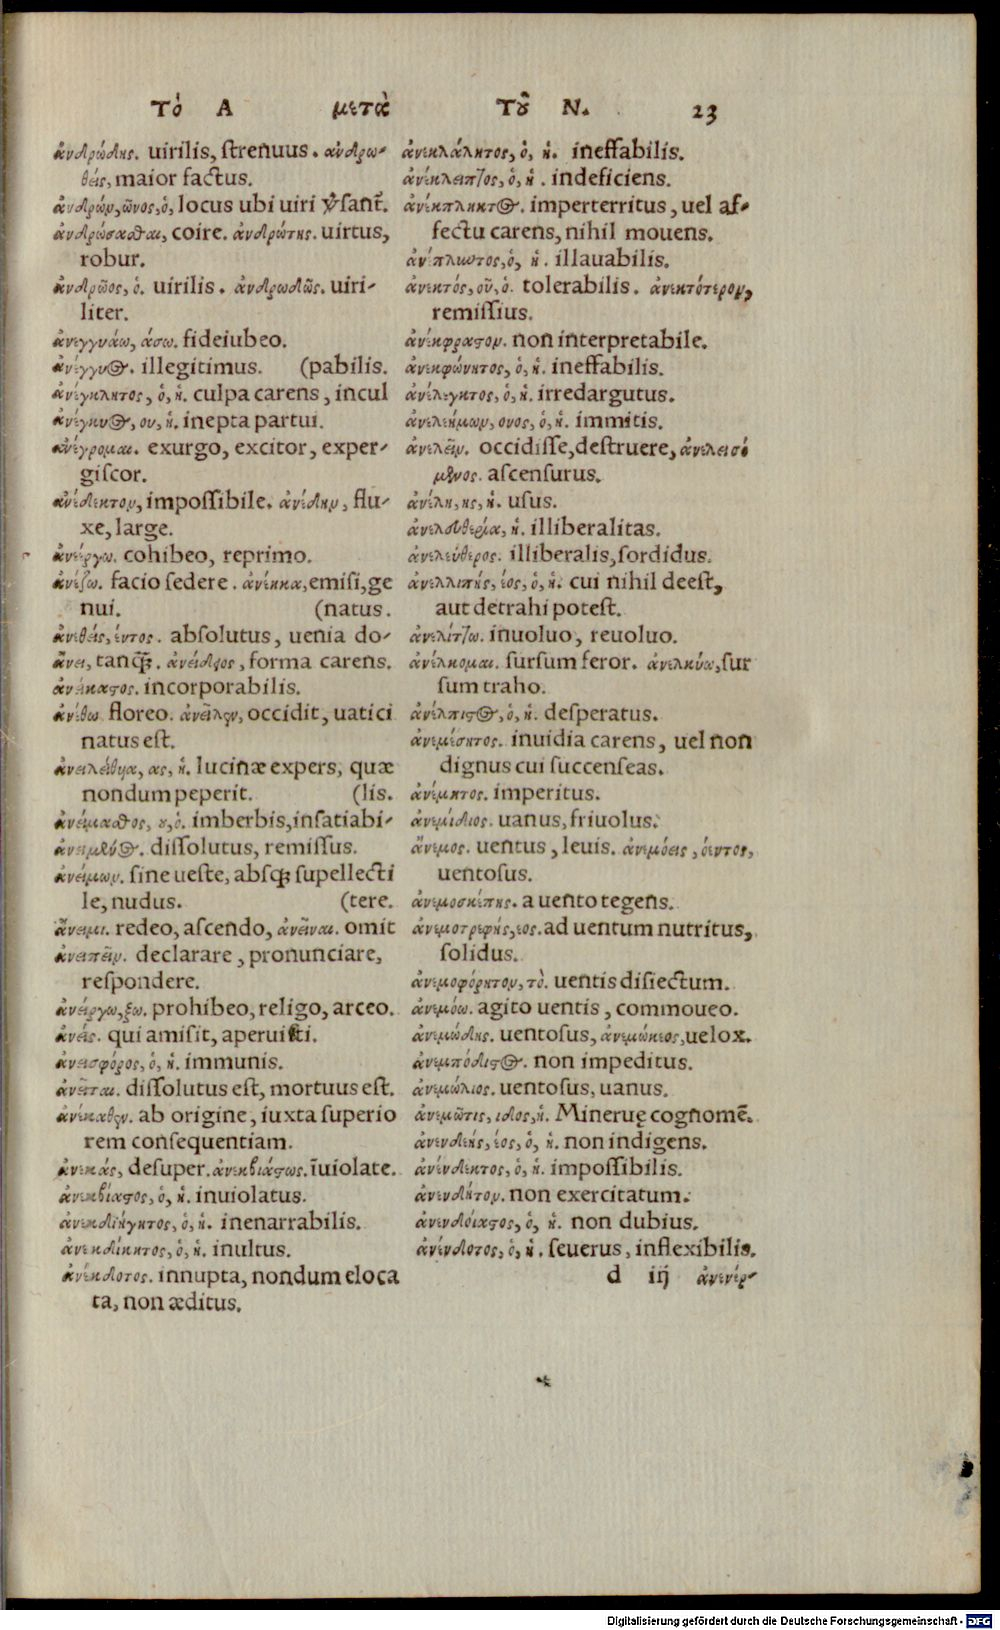 Τὸ Α μετὰ Τοῦ Ν. 23
ἀνδρώδης. uirilis, strenuus. ἀνδρω-
θείς, maior factus.
ἀνδρών, ῶνος, ὁ, locus ubi uiri
ἀνδρώσασθαι, coire. ἀνδρώτης. uirtus,
robur.
ἀνδρῶος, ὁ. uirilis. ἀνδρωδῶς. uiri-
liter.
ἀνεγγυάω, άσω. fideiubeo.
ἀνέγγυος. illegitimus. (pabilis.
ἀνέγκλητος, ὁ, ἡ. culpa carens, incul
ἀνέγκυος, ου, ἡ. inepta partui.
ἀνέγρομαι. exurgo, excitor, exper-
giscor.
ἀνέδεκτον, impossibile. ἀνέδην, flu-
xe, large.
ἀνέέργω. cohibeo, reprimo.
ἀνέζω. facio sedere. ἀνέηκα, emisi, ge
nui. (natus.
ἀνεθείς, έντος. absolutus, uenia do-
ἄνει, tanq̃. ἀνείδεος, forma carens.
ἀνείκαστος. incorporabilis.
ἀνέθω floreo. ἀνεῖλεν, occidit, uatici
natus est.
ἀνειλείθυια, ας, ἡ. lucinæ expers, quæ
nondum peperit. (lis.
ἀνείμαθος, ου, ὁ. imberbis, insatiabi-
ἀνειμένος. dissolutus, remissus.
ἀνείμων. sine ueste, absq; supellecti
le, nudus. (tere.
ἄνειμι. redeo, ascendo, ἀνεῖναι. omit
ἀνειπεῖν. declarare, pronunciare,
respondere.
ἀνείργω, ξω. prohibeo, religo, arceo.
ἀνείς. qui amisit, aperuisti.
ἀνεισφόρος, ὁ, ἡ. immunis.
ἀνεῖται. dissolutus est, mortuus est.
ἀνέκαθεν. ab origine, iuxta superio
rem consequentiam.
ἀνεκάς, desuper. ἀνεκβιάστως. ĩuiolate.
ἀνεκβίαστος, ὁ, ἡ. inuiolatus.
ἀνεκδιήγητος, ὁ, ἡ. inenarrabilis.
ἀνεκδίκητος, ὁ, ἡ. inultus.
ἀνέκδοτος. innupta, nondum eloca
ta, non æditus.
ἀνεκλάλητος, ὁ, ἡ. ineffabilis.
ἀνέκλειπτος, ὁ, ἡ. indeficiens.
ἀνέκπληκτος. imperterritus, uel af-
fectu carens, nihil mouens.
ἀνέκπλυτος, ὁ, ἡ. illauabilis.
ἀνεκτός, οῦ, ὁ. tolerabilis. ἀνεκτότερον,
remissius.
ἀνέκφραστον. non interpretabile.
ἀνεκφώνητος, ὁ, ἡ. ineffabilis.
ἀνέλεγκτος, ὁ, ἡ. irredargutus.
ἀνελεήμων, ονος, ὁ, ἡ. immitis.
ἀνελεῖν. occidisse, destruere, ἀνελευσό
μενος. ascensurus.
ἀνέλη, ης, ἡ. usus.
ἀνελευθερία, ἡ. illiberalitas.
ἀνελεύθερος. illiberalis, sordidus.
ἀνελλιπής, έος, ὁ, ἡ. cui nihil deest,
aut detrahi potest.
ἀνελίττω. inuoluo, reuoluo.
ἀνέλκομαι. sursum feror. ἀνελκύω, sur
sum traho.
ἀνέλπιστος, ὁ, ἡ. desperatus.
ἀνεμέσητος. inuidia carens, uel non
dignus cui succenseas.
ἀνέμητος. imperitus.
ἀνεμίδιος. uanus, friuolus.
ἄνεμος. uentus, leuis. ἀνεμόεις, όεντος,
uentosus.
ἀνεμοσκεπής. a uento tegens.
ἀνεμοτρεφής, έος. ad uentum nutritus,
solidus.
ἀνεμοφόρητον, τὸ. uentis disiectum.
ἀνεμόω. agito uentis, commoueo.
ἀνεμώδης. uentosus, ἀνεμώκεος, uelox.
ἀνεμπόδιστος. non impeditus.
ἀνεμώλιος. uentosus, uanus.
ἀνεμῶτις, ιδος, ἡ. Mineruę cognomē.
ἀνενδεής, έος, ὁ, ἡ. non indigens.
ἀνένδεκτος, ὁ, ἡ. impossibilis.
ἀνένδητον. non exercitatum.
ἀνενδοίαστος, ὁ, ἡ. non dubius.
ἀνένδοτος, ὁ, ἡ. seuerus, inflexibilis.
d iij ἀνενέρ-
Digitalisierung gefördert durch die Deutsche Forschungsgemeinschaft - DFG